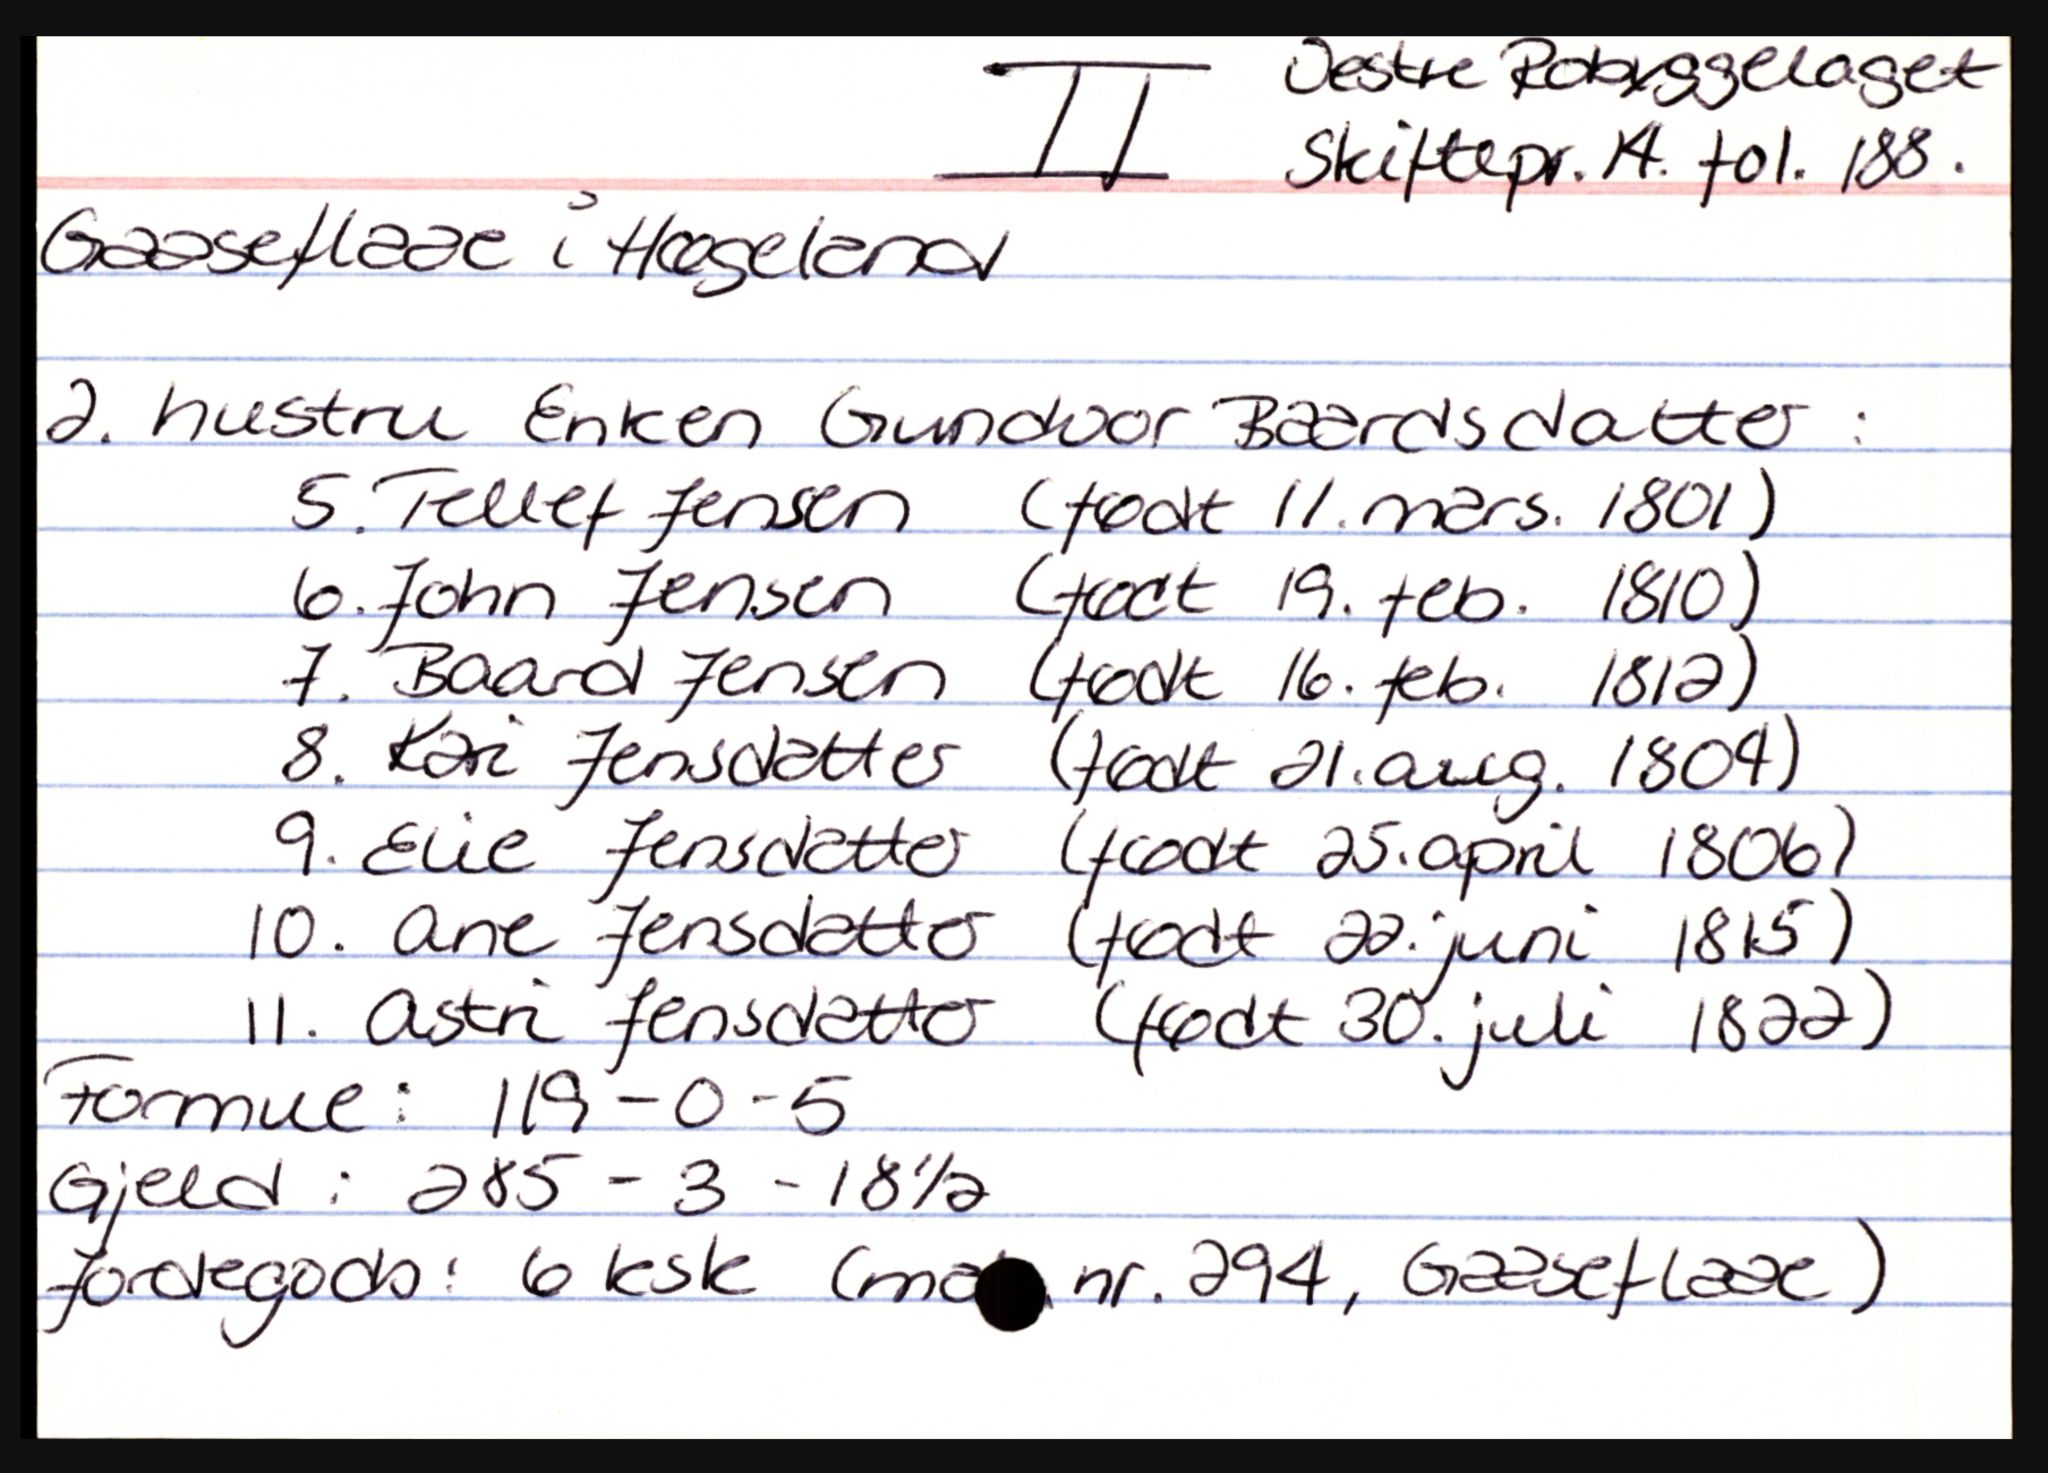 II
Vestre Robyggelaget
Skiftepr. 14. fol. 188.
Gaaseflaae i Hægeland
2. hustru Enken Gundvor Baardsdatter :
5. Tellef Jensen (født 11. mars. 1801)
6. John Jensen (født 19. feb. 1810)
7. Baard Jensen (født 16. feb. 1812)
8. Kari Jensdatter (født 21. aug. 1804)
9. Elie Jensdatter (født 25. april 1806)
10. Ane Jensdatter (født 22. juni 1815)
11. Astri Jensdatter (født 30. juli 1822)
Formue : 119 - 0 - 5
Gjeld : 285 - 3 - 18 1/2
Jordegods : 6 ksk ( nr. 294, Gaaseflaae )